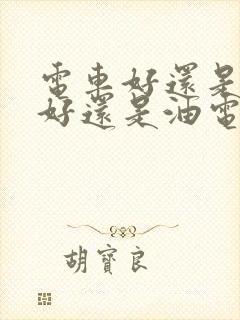 電車好還是
好還是油電
胡寶良